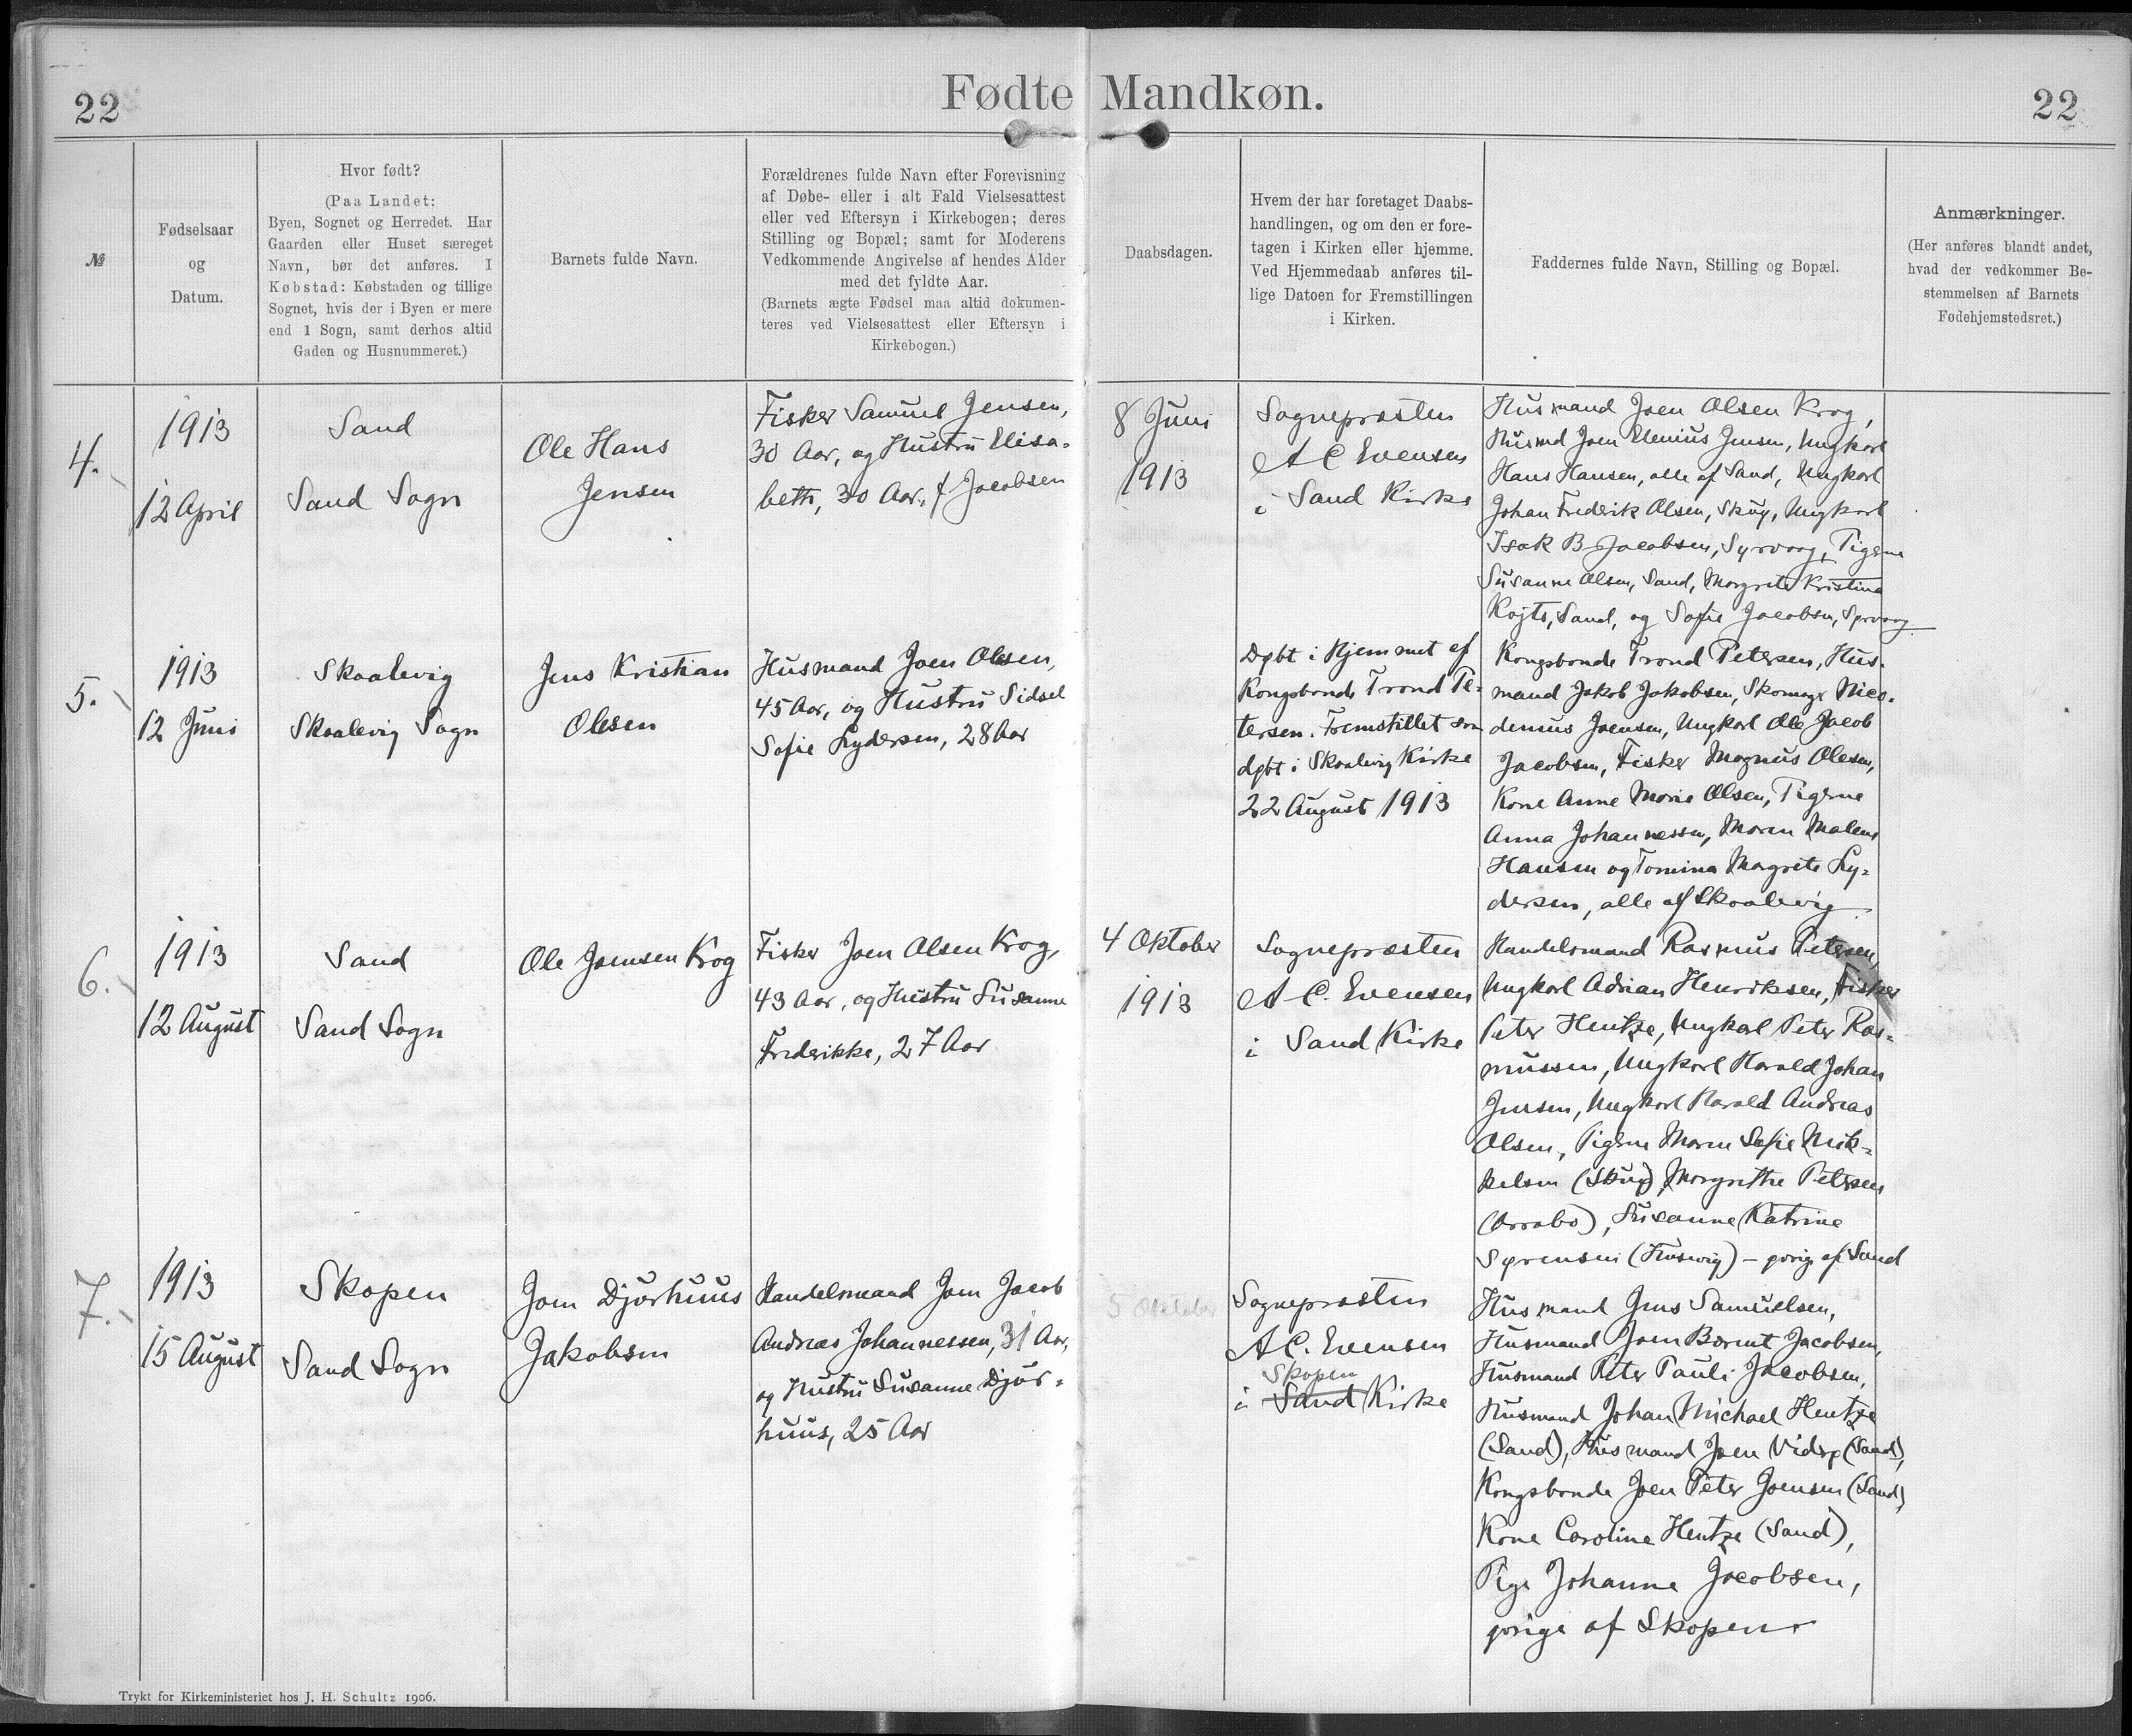 22
Fødte Mandkøn.
22
№
Fødselsaar
og
Datum.
Hvor født?
(Paa Landet:
Byen, Sognet og Herredet. Har
Gaarden eller Huset særeget
Navn, bør det anføres. I
Købstad: Købstaden og tillige
Sognet, hvis der i Byen er mere
end 1 Sogn, samt derhos altid
Gaden og Husnummeret.)
Barnets fulde Navn.
Forældrenes fulde Navn efter Forevisning
af Døbe- eller i alt Fald Vielsesattest
eller ved Eftersyn i Kirkebogen; deres
Stilling og Bopæl; samt for Moderens
Vedkommende Angivelse af hendes Alder
med det fyldte Aar.
(Barnets ægte Fødsel maa altid dokumen-
teres ved Vielsesattest eller Eftersyn i
Kirkebogen.)
Daabsdagen.
Hvem der har foretaget Daabs-
handlingen, og om den er fore-
tagen i Kirken eller hjemme.
Ved Hjemmedaab anføres til-
lige Datoen for Fremstillingen
i Kirken.
Faddernes fulde Navn, Stilling og Bopæl.
Anmærkninger.
(Her anføres blandt andet,
hvad der vedkommer Be-
stemmelsen af Barnets
Fødehjemstedsret.)
4.
1913
12 April
Sand
Sand Sogn
Ole Hans
Jensen
Fisker Samuel Jensen,
30 Aar, og Hustru Elisa-
beth, 30 Aar, f Jacobsen
8 Juni
1913
Sognepræsten
A C Evensen
i Sand Kirke
Husmand Joen Olsen Krog,
Husmd Joen Elenius Jensen, Ungkarl
Hans Hansen, alle af Sand, Ungkarl
Johan Frederik Olsen, Skuø, Ungkarl
Isak B Jacobsen, Sørvaag, Pigerne
Susanne Olsen, Sand, Margrete Kristina
Sand, og Sofie Jacobsen, Sørvaag
5.
1913
12 Juni
Skaalevig
Skaalevig Sogn
Jens Kristian
Olesen
Husmand Joen Olesen,
45 Aar, og Hustru Sidsel
Sofie Lydersen, 28 Aar
Døbt i Hjemmet af
Kongsbonde Trond Pe-
tersen. Fremstillet som
døbt i Skaalevig Kirke
22 August 1913
Kongsbonde Trond Petersen, Hus-
mand Jakob Jakobsen, Skomager Nico-
demus Joensen, Ungkarl Ole Jacob
Jacobsen, Fisker Magnus Olesen,
Kone Anne Marie Olsen, Pigerne
Anna Johannessen, Maren Malene
Hansen og Tomina Magrete Ly-
dersen, alle af Skaalevig
6.
1913
12 August
Sand
Sand Sogn
Ole Joensen Krog
Fisker Joen Olsen Krog,
43 Aar, og Hustru Susanne
Frederikke, 27 Aar
4 Oktober
1913
Sognepræsten
A C. Evensen
i Sand Kirke
Handelsmand Rasmus Petersen,
Ungkarl Adrian Henriksen, Fisker
Peter Hentze, Ungkarl Peter Ras-
mussen, Ungkarl Harald Johan
Jensen, Ungkarl Harald Andreas
Olsen, Pigerne Maren Sofie Mik-
kelsen (Skuø), Margrethe Petersen
(Arrabo), Susanne Katrine
Sørensen (Husevig) – øvrige af Sand
7.
1913
15 August
Skopen
Sand Sogn
Joen Djurhuus
Jakobsen
Handelsmand Joen Jacob
Andreas Johannessen, 31 Aar,
og Hustru Susanne Djur-
huus, 25 Aar
5 Oktober
Sognepræsten
A C. Evensen
Skopen
i Sand Kirke
Husmand Jens Samuelsen,
Husmand Joen Barent Jacobsen,
Husmand Peter Pauli Jacobsen,
Husmand Johan Michael Hentze
(Sand), Husmand Joen Viderø (Sand),
Kongsbonde Joen Peter Joensen (Sand)
Kone Caroline Hentze (Sand),
Pige Johanne Jacobsen,
øvrige af Skopen
Trykt for Kirkeministeriet hos J. H. Schultz 1906.